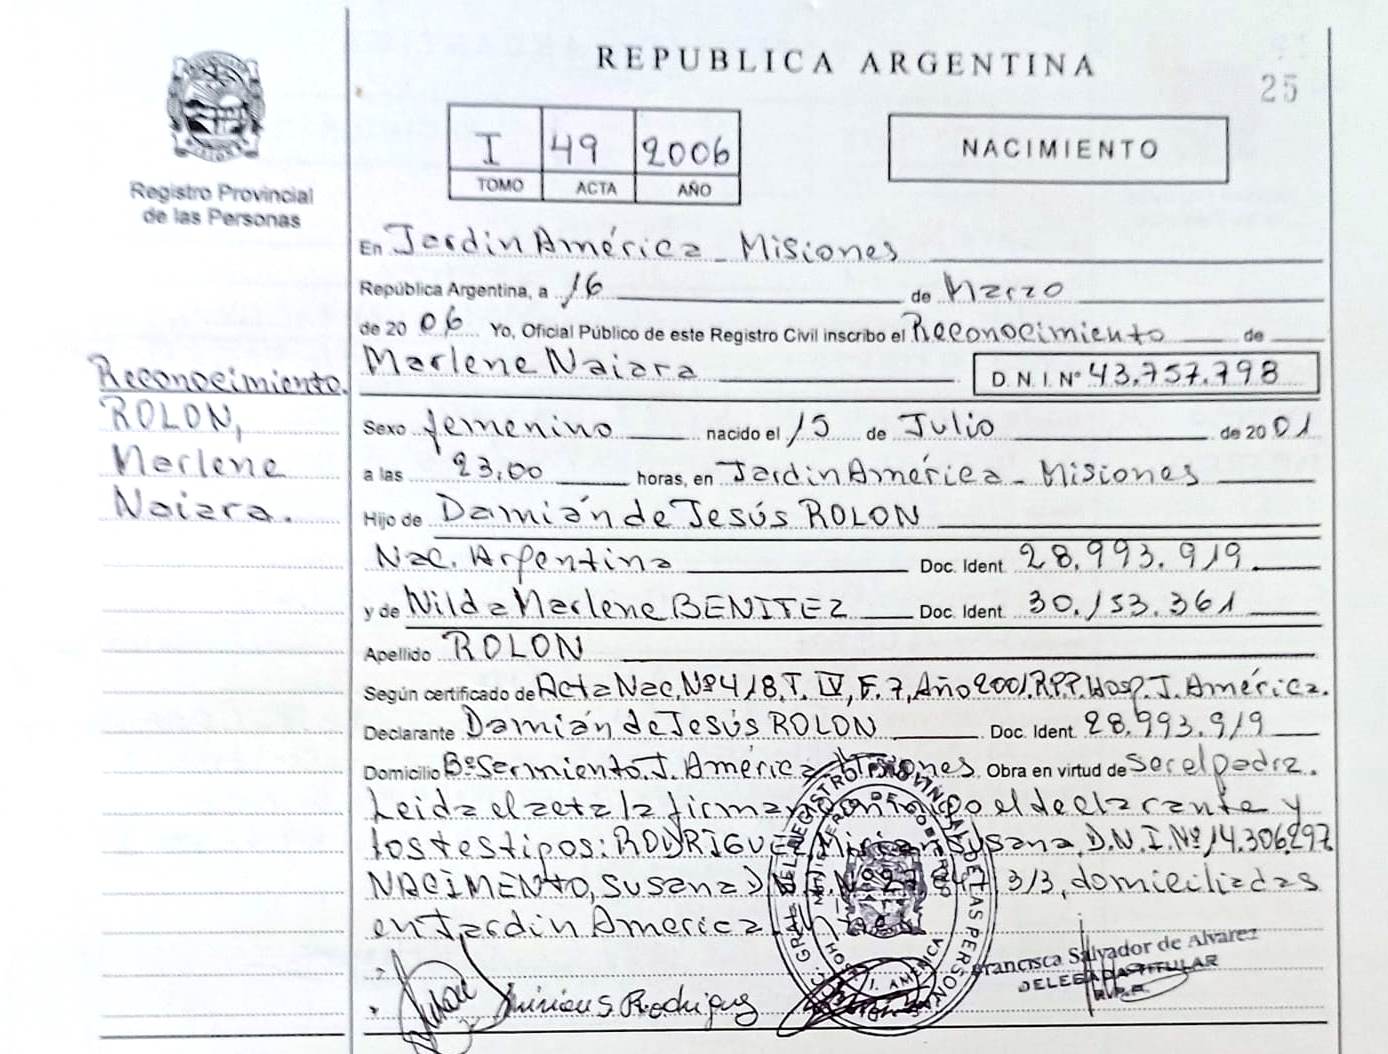 REPUBLICA ARGENTINA
25
I 49 2006
TOMO ACTA AÑO
NACIMIENTO
Registro Provincial
de las Personas
En Jardín América - Misiones
República Argentina, a 16 de Marzo
de 20 06 Yo, Oficial Público de este Registro Civil inscribo el Reconocimiento de
Marlene Naiara D.N.I. Nº 43.757.798
Reconocimiento.
ROLON,
Marlene
Naiara.
Sexo femenino nacido el 15 de Julio de 20 01
a las 23,00 horas, en Jardín América - Misiones
Hijo de Damián de Jesús ROLON
Nac. Argentina Doc. Ident. 28.993.919
y de Nilda Marlene BENITEZ Doc. Ident. 30.153.361
Apellido ROLON
Según certificado de Acta Nac. Nº 418, T. IV, F. 7, Año 2001. R.P.P. Hosp. J. América.
Declarante Damián de Jesús ROLON Doc. Ident. 28.993.919
Domicilio Bº Sarmiento. J. América Misiones. Obra en virtud de Ser el padre.
Leída el acta la firman conmigo el declarante y
los testigos: RODRIGUEZ, Miriam Susana, D.N.I. Nº 14.306.297
NACIMENTO, Susana D.N.I. Nº 313, domiciliadas
en Jardín América
REGISTRO PROVINCIAL DE LAS PERSONAS
J. AMÉRICA
Miriam S Rodriguez
Francisca Salvador de Alvarez
DELEGADA TITULAR
R.P.P.